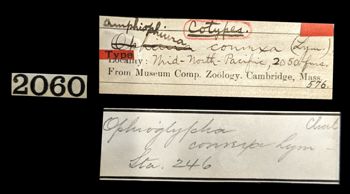 amphiophiura Cotypes.
Ophiura convexa (Lym)
Type
Locality: Mid-North-Pacific, 2050 fms.
From Museum Comp. Zoology, Cambridge, Mass.
576.
2060
Ophioglypha
convexa Lym-
Sta. 246